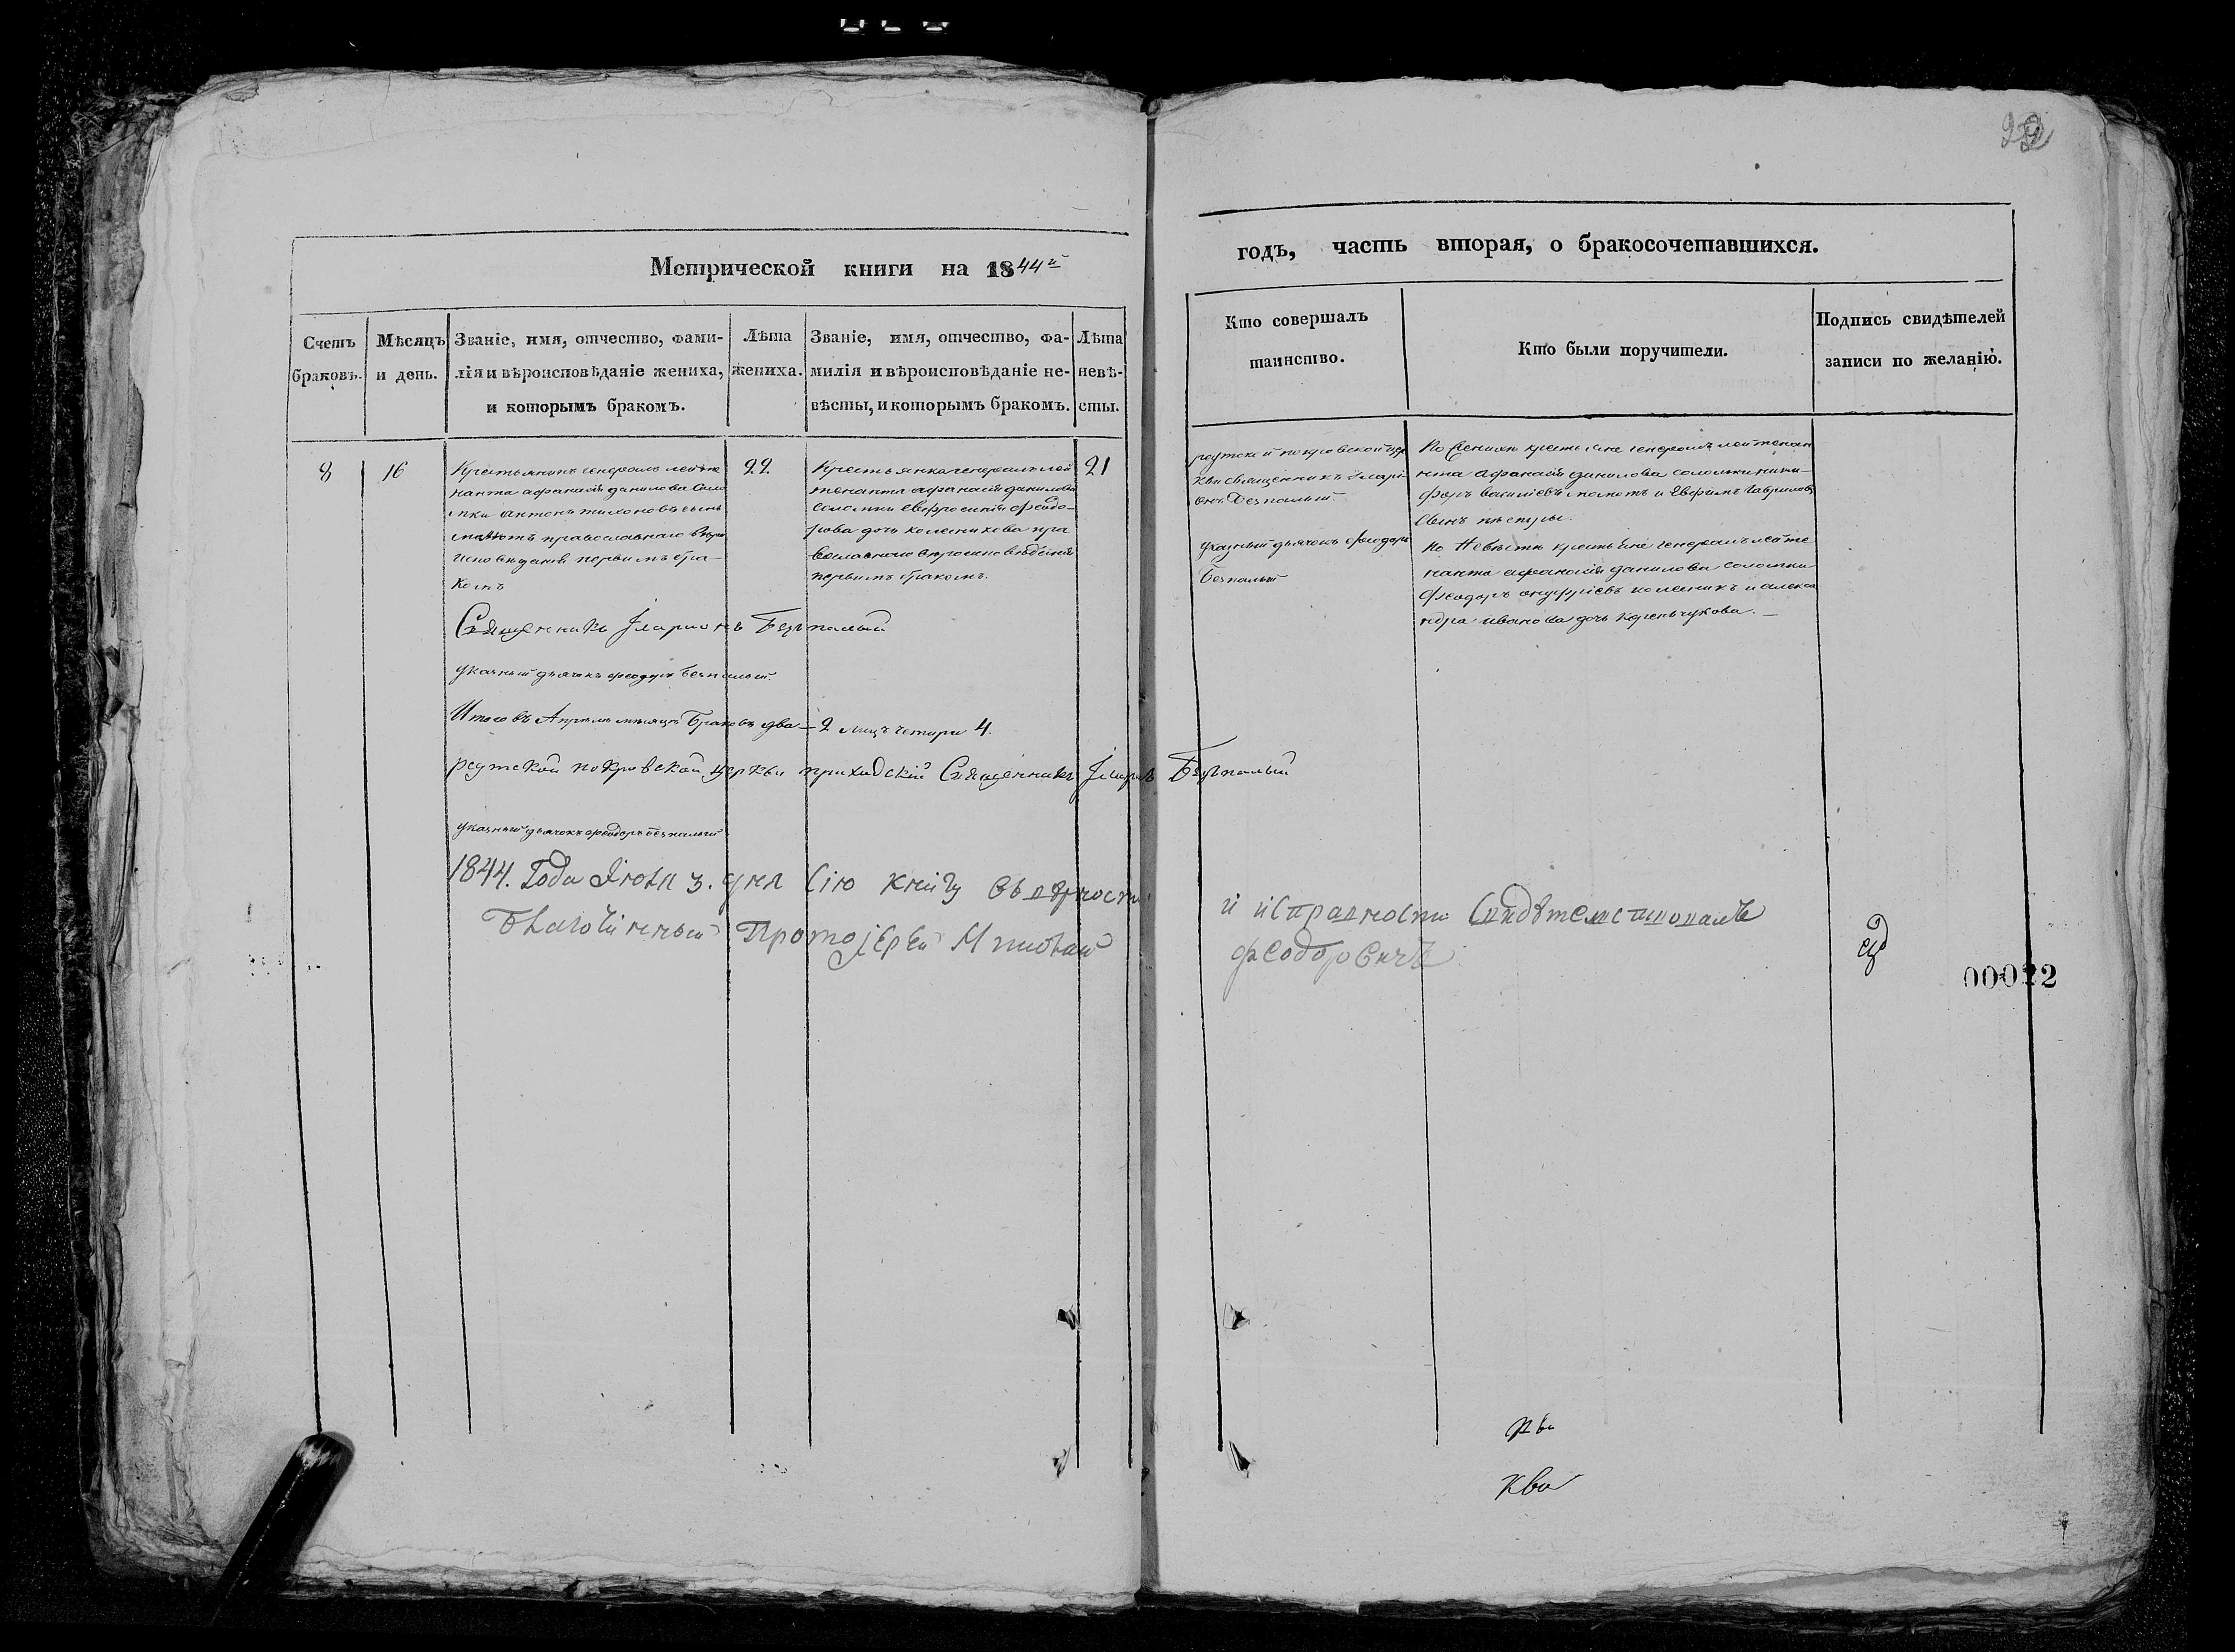 22
Метрической книги на 1844й
годъ, часть вторая, о бракосочетавшихся.
Счетъ браковъ.
Мѣсяцъ и день.
Званіе, имя, отчество, фами-
лія и вѣроисповѣданіе жениха,
и которымъ бракомъ.
Лѣта
жениха.
Званіе, имя, отчество, фа-
милія и вѣроисповѣданіе не-
вѣсты, и которымъ бракомъ.
Лѣта
невѣ-
сты.
Кто совершалъ
таинство.
Кто были поручители.
Подпись свидѣтелей
записи по желанію.
8
16
Крестьянинъ генералъ лейте
нанта афанасія данилова Соло
мки антонъ тихоновъ сынъ
православнаго вѣро
исповѣданія первымъ бра-
комъ
22
Крестьянка генералъ лей
тенанта афанасія данилова
соломки евфросинія феодо-
рова дочь колесникова пра
вославнаго вѣроисповѣданія
первымъ бракомъ.
21
реутской покровской цер
кви священникъ Iлари-
онъ Безпалый.
указный дьячокъ феодоръ
безпалый
По Женихѣ крестьяне генералъ лейтенан
нта афанасія данилова соломки ники-
форъ василіевъ и Ефимъ Гавриловъ
сынъ
по Невѣстѣ крестьяне генералъ лейте
нанта афанасія данилова соломки
феодоръ онуфріевъ колесникъ и алекса
ндра иванова дочь
Священникъ Iларионъ Безпалый
указный дьячокъ феодоръ безпалый.
Итого въ Апрѣлѣ мѣсяцѣ браковъ два — 2 лицъ четыри 4.
реутской покровской церкви приходскій Священникъ Iларионъ Безпалый
указный дьячокъ феодоръ безпалый
1844. Года Iюля 3. дня Сію книгу въ вѣрности
и исправности Свидѣтелствовалъ
Благочинный Протоіерей Михаилъ
феодоровичъ
00022